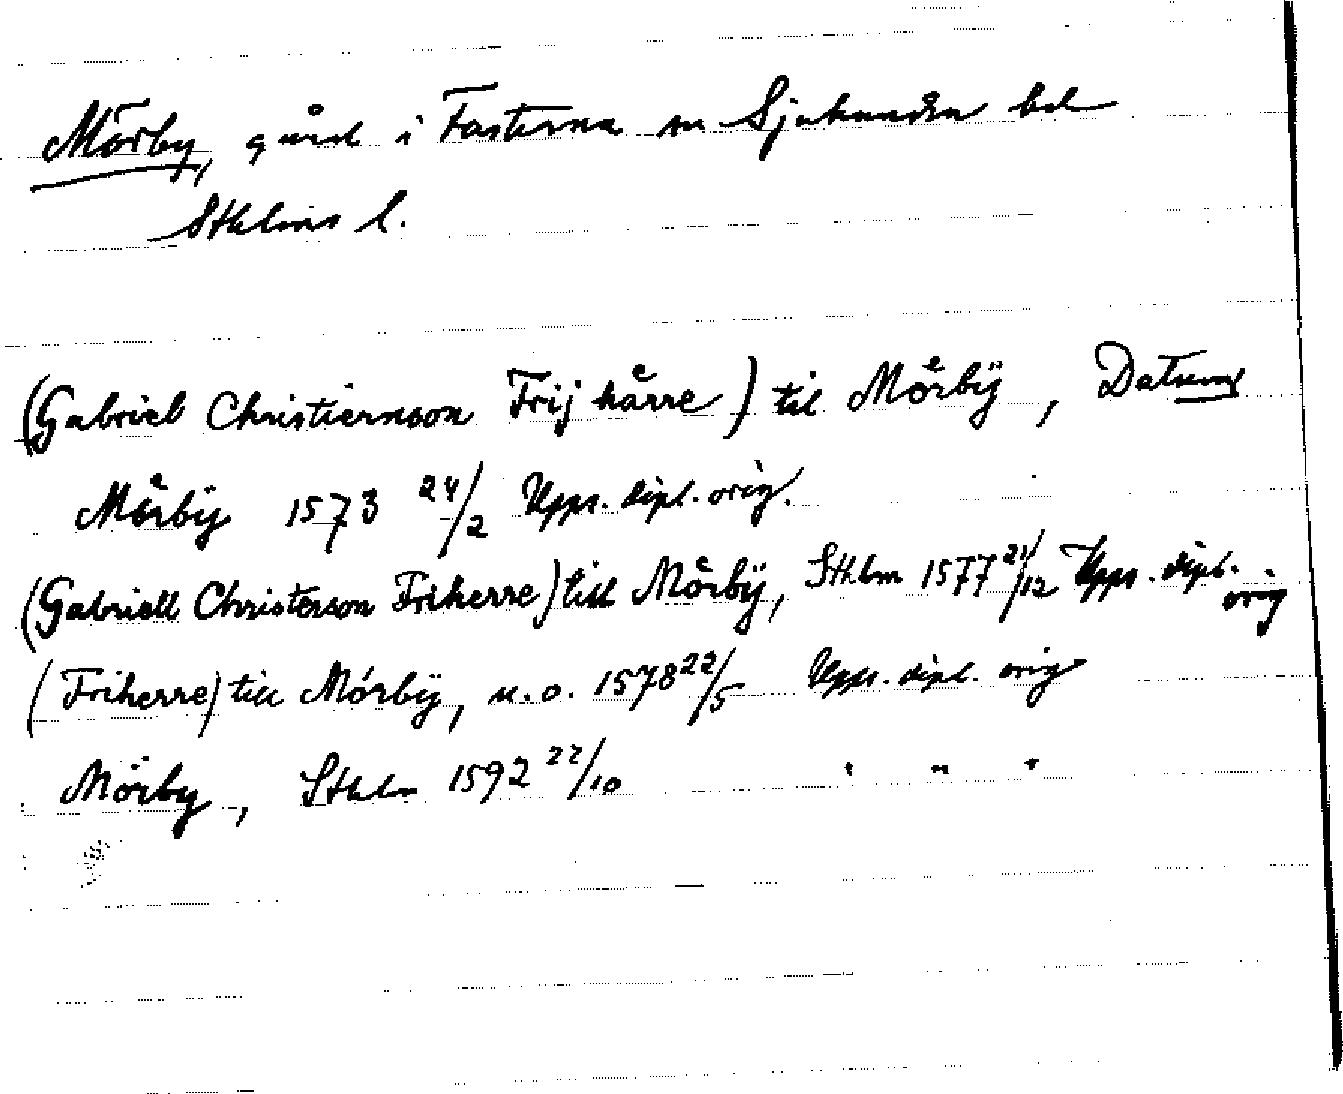 Mörby, gård i Fasterna sn Sjuhundra hd
Sthlms l.
(Gabriel Christiernson Frijhaͤrre) til Moͤrbÿ, Datum
Moͤrbÿ 1573 24/2 Upps. dipl. orig.
(Gabriell Christerson Friherre) till Moͤrbÿ, Sthlm 1577 21/12 Upps. dipl. orig
(Friherre) till Mórbÿ, u.o. 1578 22/5 Upps. dipl. orig
Mörby, Sthlm 1592 22/10 " " "